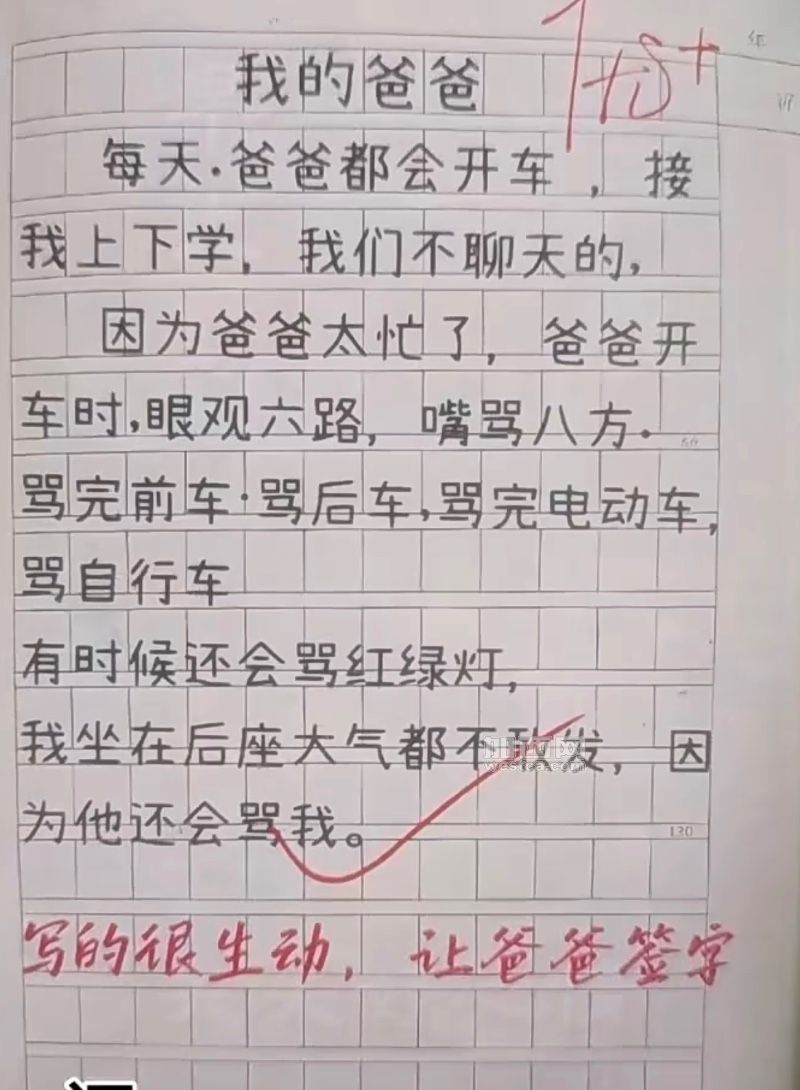 我的爸爸
优+
每天.爸爸都会开车，接
我上下学，我们不聊天的，
因为爸爸太忙了，爸爸开
车时,眼观六路，嘴骂八方.
骂完前车·骂后车,骂完电动车,
骂自行车
有时候还会骂红绿灯,
我坐在后座大气都不敢发，因
为他还会骂我。
130
写的很生动，让爸爸签字